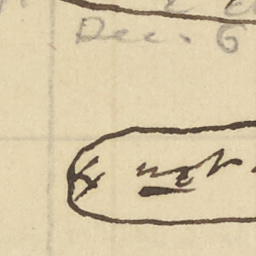 Dec. 6
& not